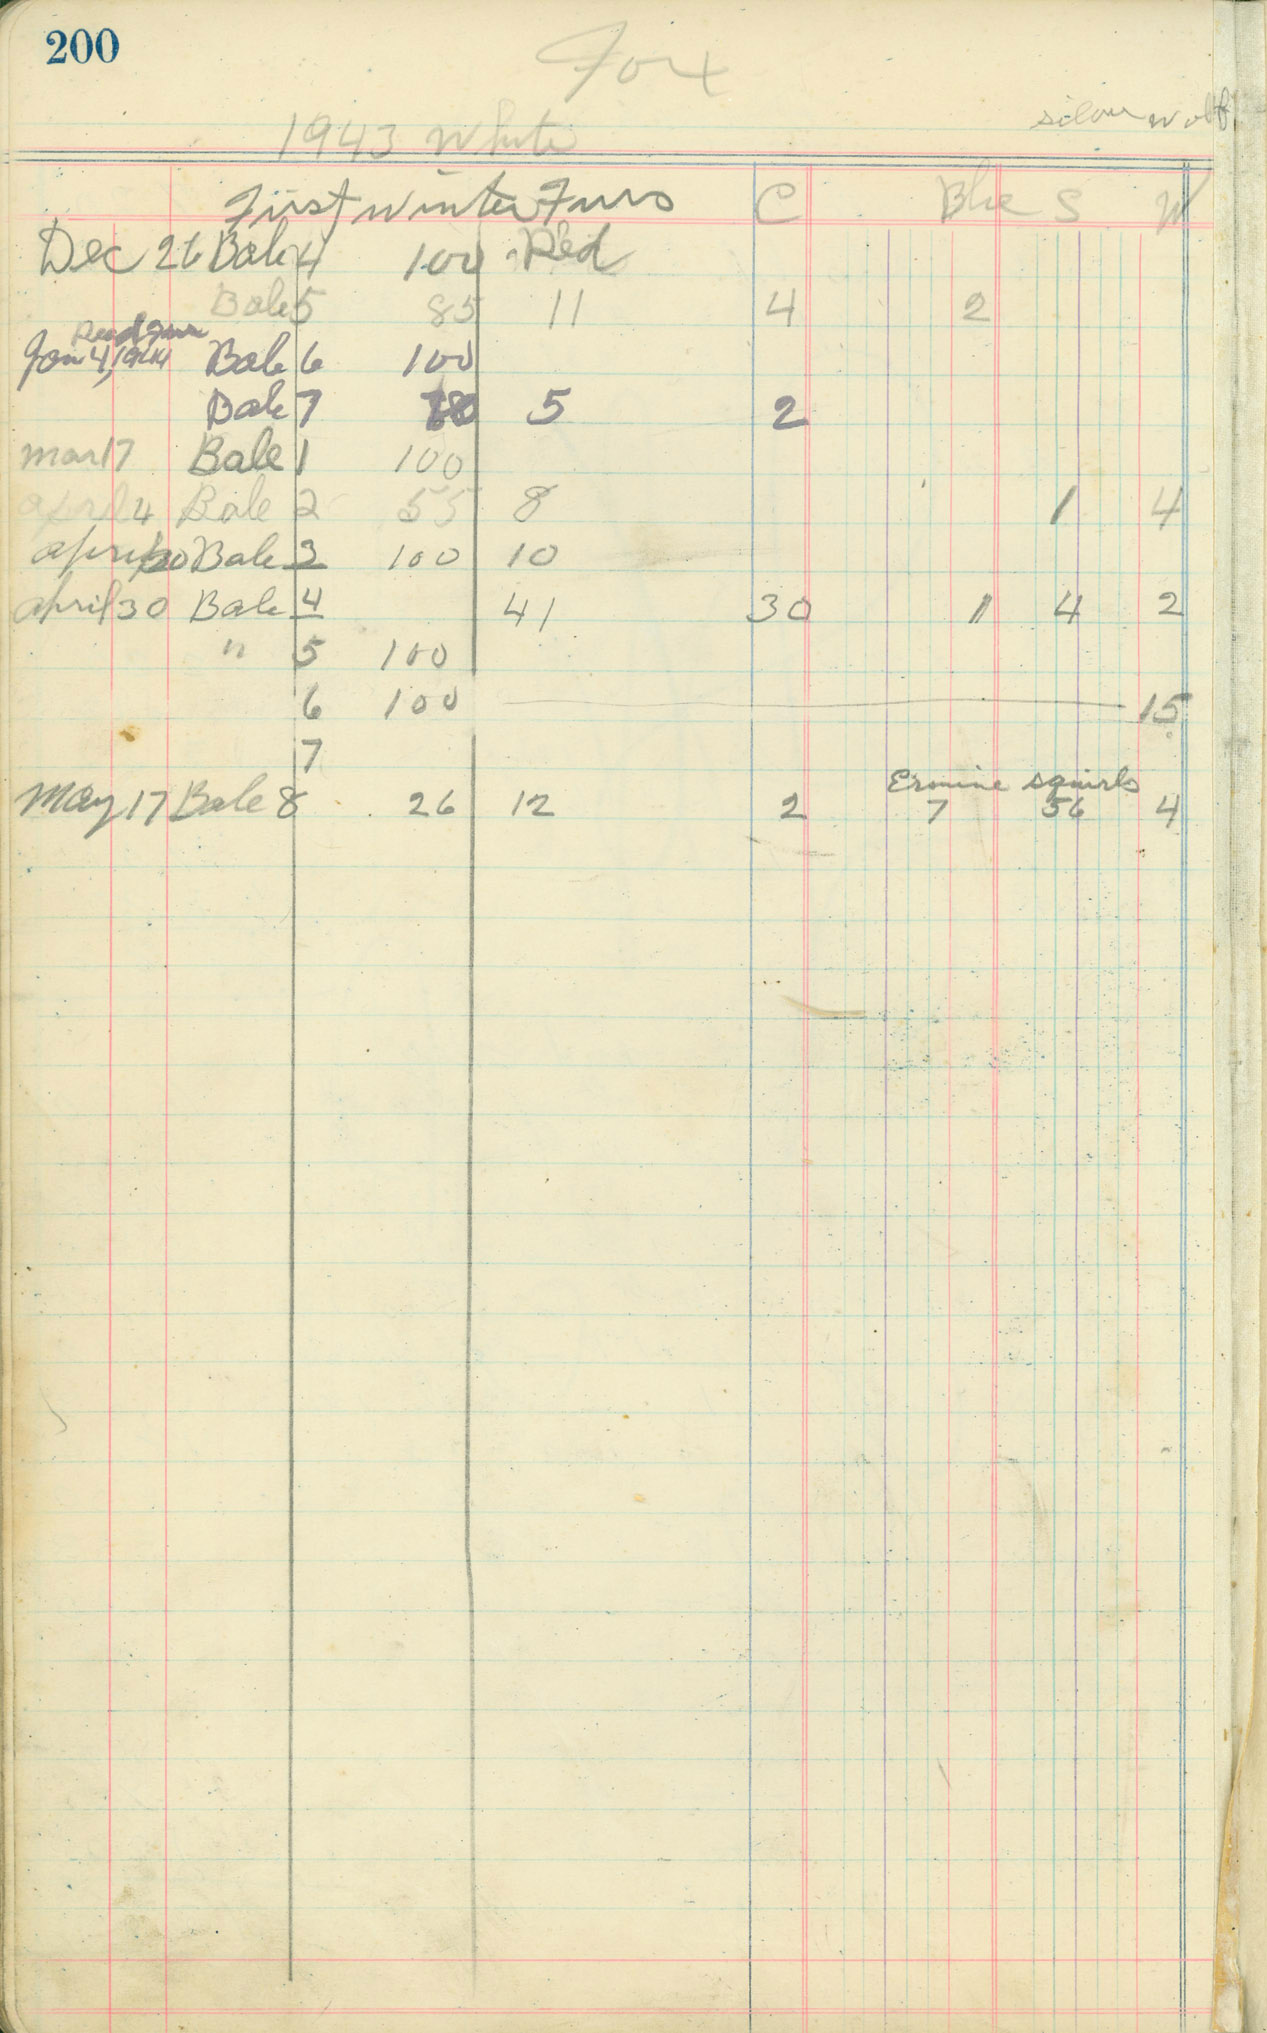 200
Fox
silver wolf
1943 White
First winter Furs C Blue S W
Dec 26 Bale 4 100 Red
Bale 5 85 11 4 2
Read Fur
Jan 4, 1944 Bale 6 100
Bale 7 5 2
Mar 17 Bale 1 100
april 4 Bale 2 55 8 1 4
april 20 Bale 3 100 10
april 30 Bale 4 41 30 1 4 2
" 5 100
6 100 15
7
Ermine squirls
May 17 Bale 8 26 12 2 7 56 4